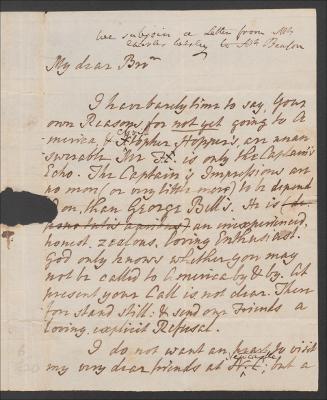 we subjoin a Letter from Mr
Charles Wesley to Mr Benson
My dear Bror
I have barely time to say, Your
own Reasons for not yet going to A
merica, & Chris Hopper's, are unan
swerable. Mr F. is only the Captain's
Echo. The Captain's Impressions are
no more (or very little more) to be depend
ed on, than George Bell's. He is
an unexperienced,
honest, zealous, loving Enthusiast.
God only knows whether you may
not be called to America by & by. At
present your Call is not clear. There
fore stand still: & send our Friends a
loving, explicit Refusal.
I do not want an heart to visit
my very dear friends at Newcastle; but a